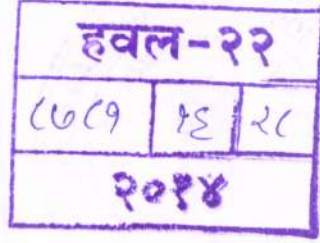 हवल-२२
८७८१ १६ २८
२०१४